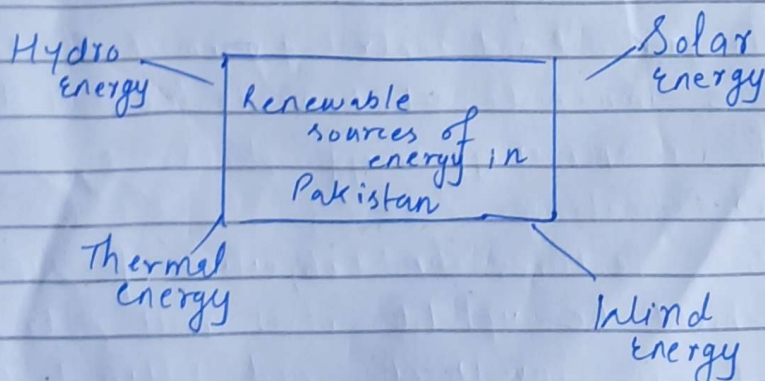 Hydro
Energy
Solar
Energy
Renewable
sources of
energy in
Pakistan
Thermal
energy
Wind
Energy